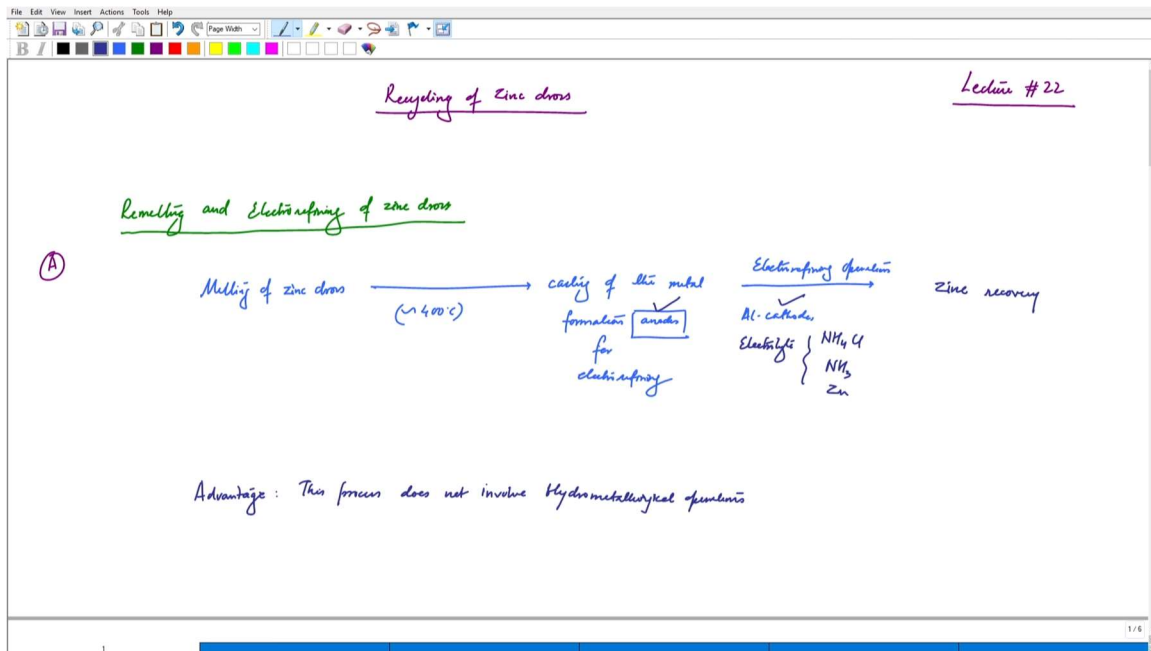 File Edit View Insert Actions Tools Help
Page Width
B I
Recycling of Zinc dross
Lecture #22
Remelting and Electrorefining of zinc dross
A
Melting of zinc dross
(~400°C)
casting of the metal
formation anodes
for
electrorefining
Electrorefining operation
Al-cathodes
Electrolyte { NH4Cl
NH3
Zn
Zinc recovery
Advantage: This process does not involve Hydrometallurgical operations
1 / 6
1